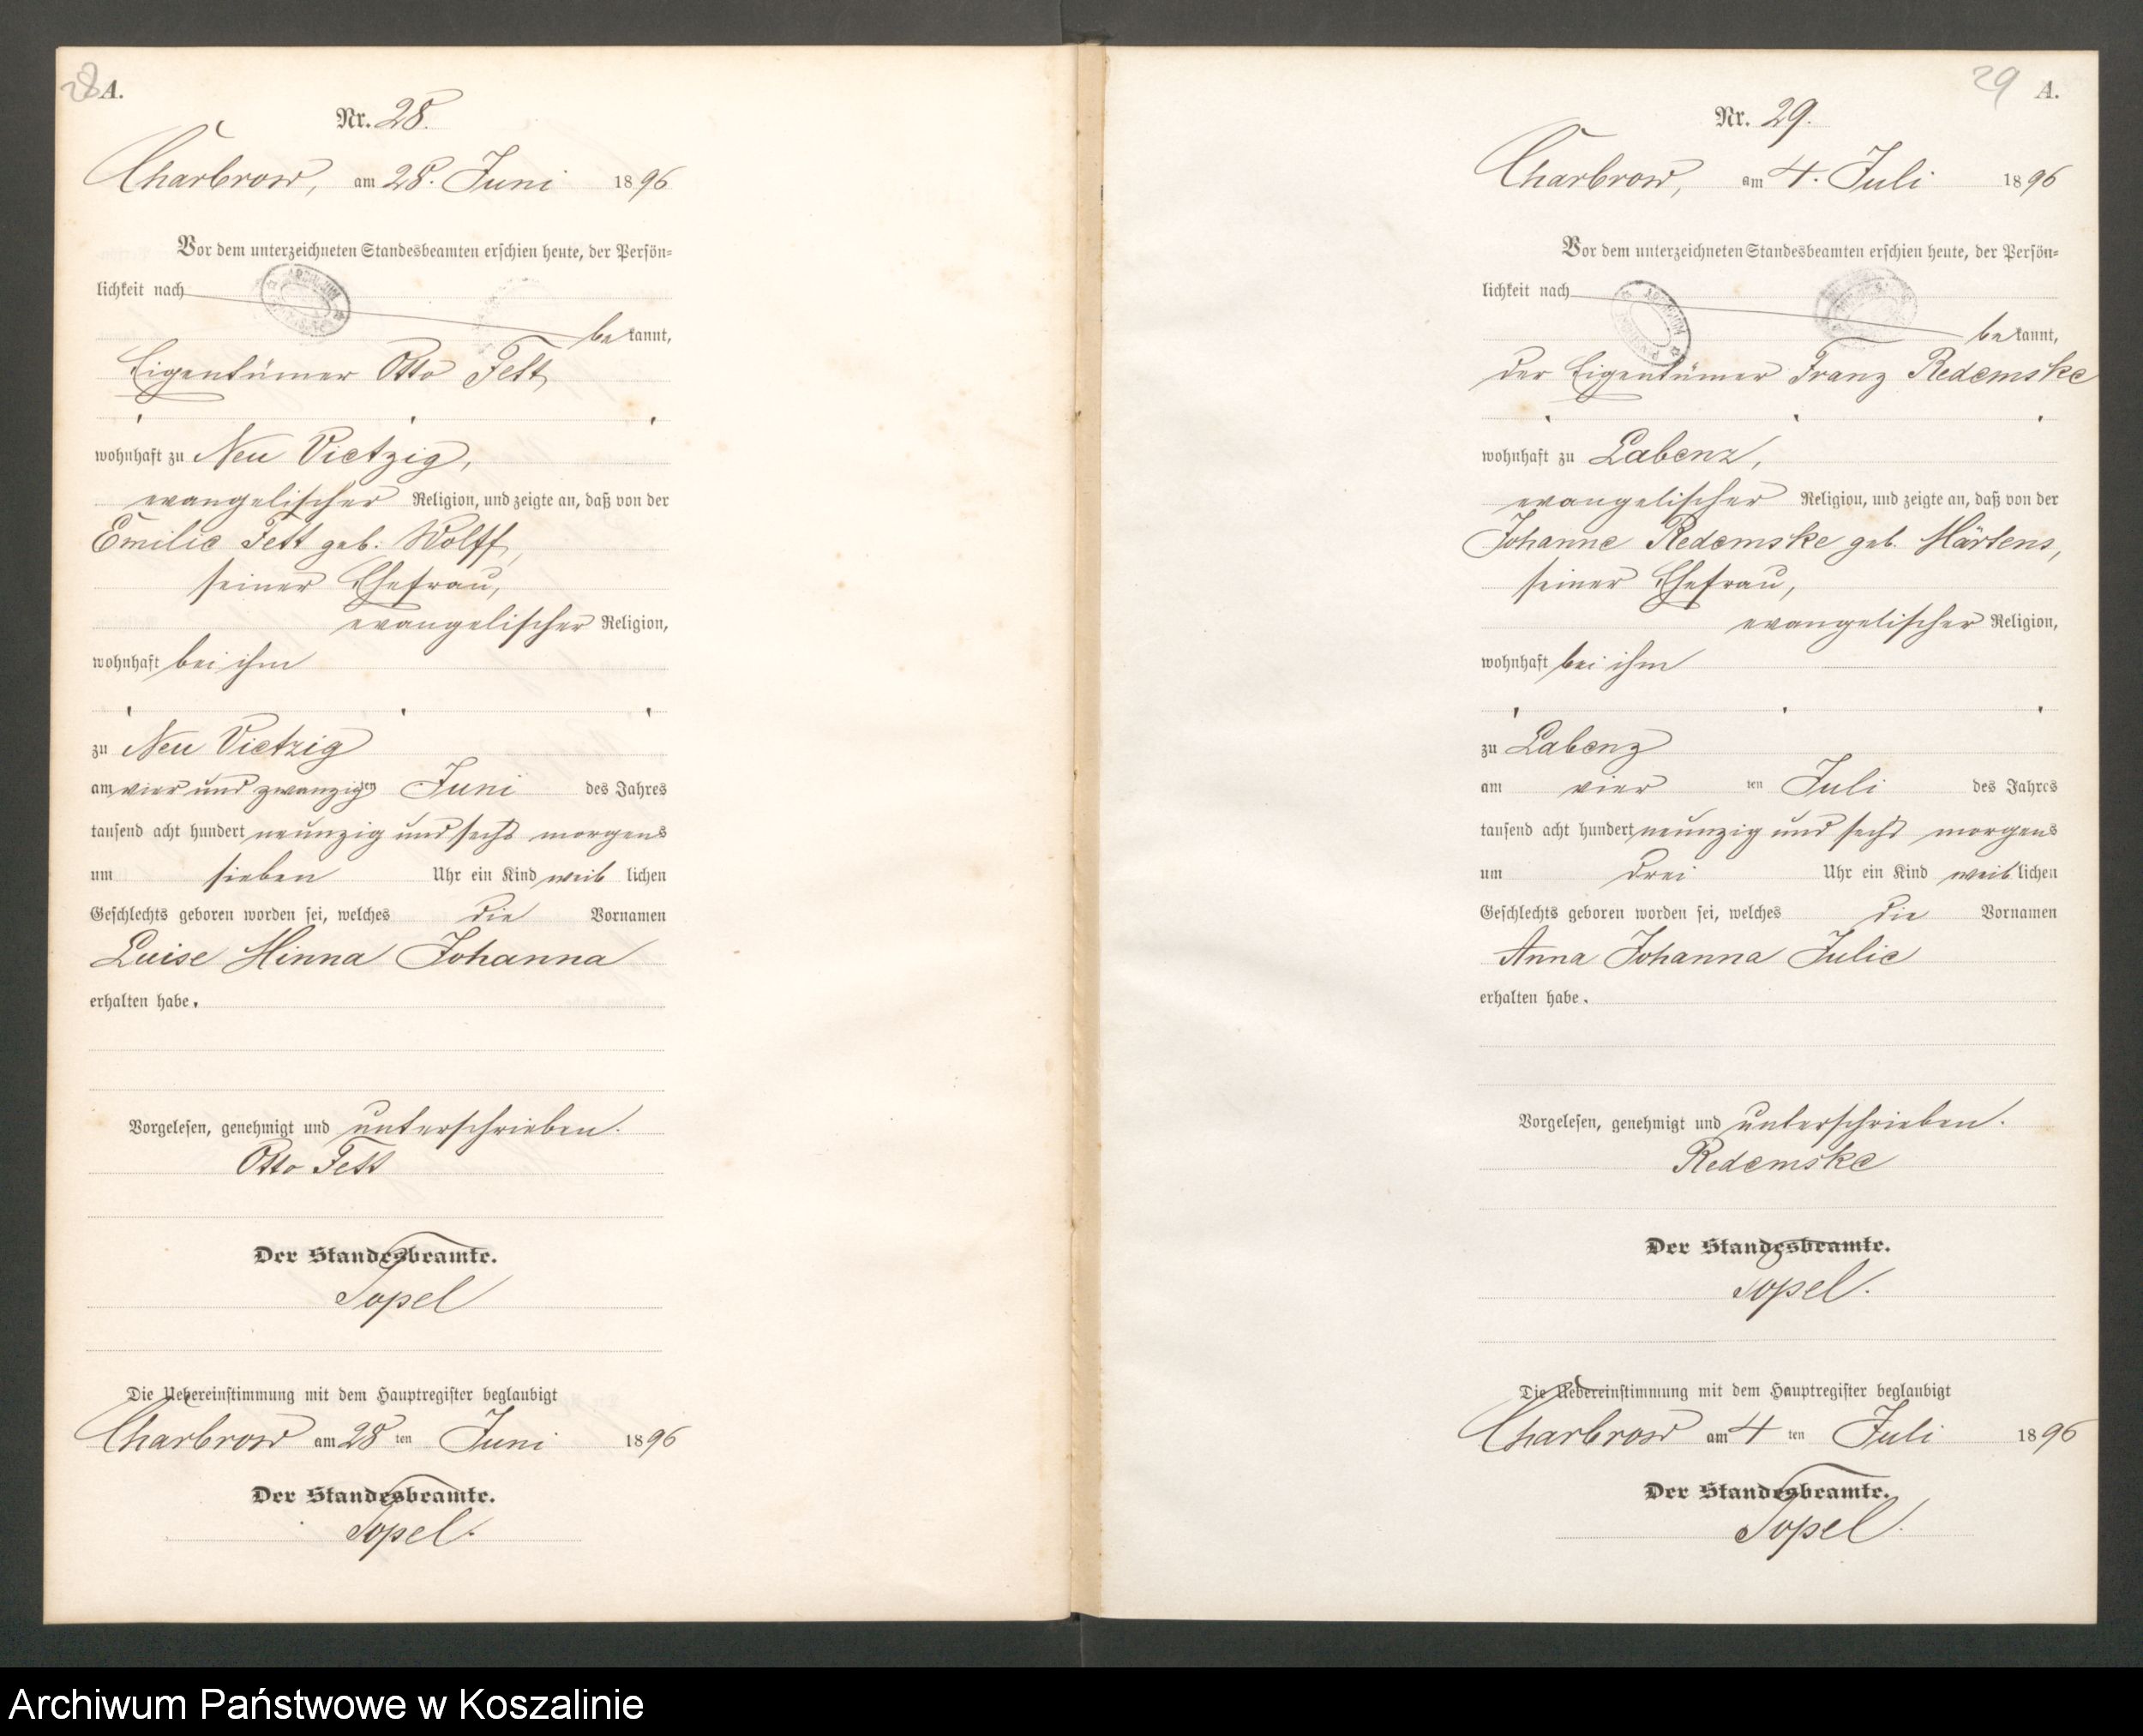 28 A.
Nr. 28.
Charbrow, am 28. Juni 1896
Vor dem unterzeichneten Standesbeamten erschien heute, der Persön=
lichkeit nach
bekannt,
Eigentümer Otto Fett,
wohnhaft zu Neu Vietzig,
evangelischer Religion, und zeigte an, daß von der
Emilie Fett geb. Wolff,
seiner Ehefrau,
evangelischer Religion,
wohnhaft bei ihm
zu Neu Vietzig
am vier und zwanzigten Juni des Jahres
tausend acht hundert neunzig und sechs morgens
um sieben Uhr ein Kind weiblichen
Geschlechts geboren worden sei, welches die Vornamen
Luise Minna Johanna
erhalten habe.
Vorgelesen, genehmigt und unterschrieben.
Otto Fett
Der Standesbeamte.
Topel
Die Uebereinstimmung mit dem Hauptregister beglaubigt
Charbrow am 28ten Juni 1896
Der Standesbeamte.
Topel.
29 A.
Nr. 29.
Charbrow, am 4. Juli 1896
Vor dem unterzeichneten Standesbeamten erschien heute, der Persön=
lichkeit nach
bekannt,
der Eigentümer Franz Redemske
wohnhaft zu Labenz,
evangelischer Religion, und zeigte an, daß von der
Johanne Redemske geb. Märtens,
seiner Ehefrau,
evangelischer Religion,
wohnhaft bei ihm
zu Labenz
am vier ten Juli des Jahres
tausend acht hundert neunzig und sechs morgens
um drei Uhr ein Kind weiblichen
Geschlechts geboren worden sei, welches die Vornamen
Anna Johanna Julie
erhalten habe.
Vorgelesen, genehmigt und unterschrieben.
Redemske
Der Standesbeamte.
Topel.
Die Uebereinstimmung mit dem Hauptregister beglaubigt
Charbrow am 4ten Juli 1896
Der Standesbeamte.
Topel.
Archiwum Państwowe w Koszalinie